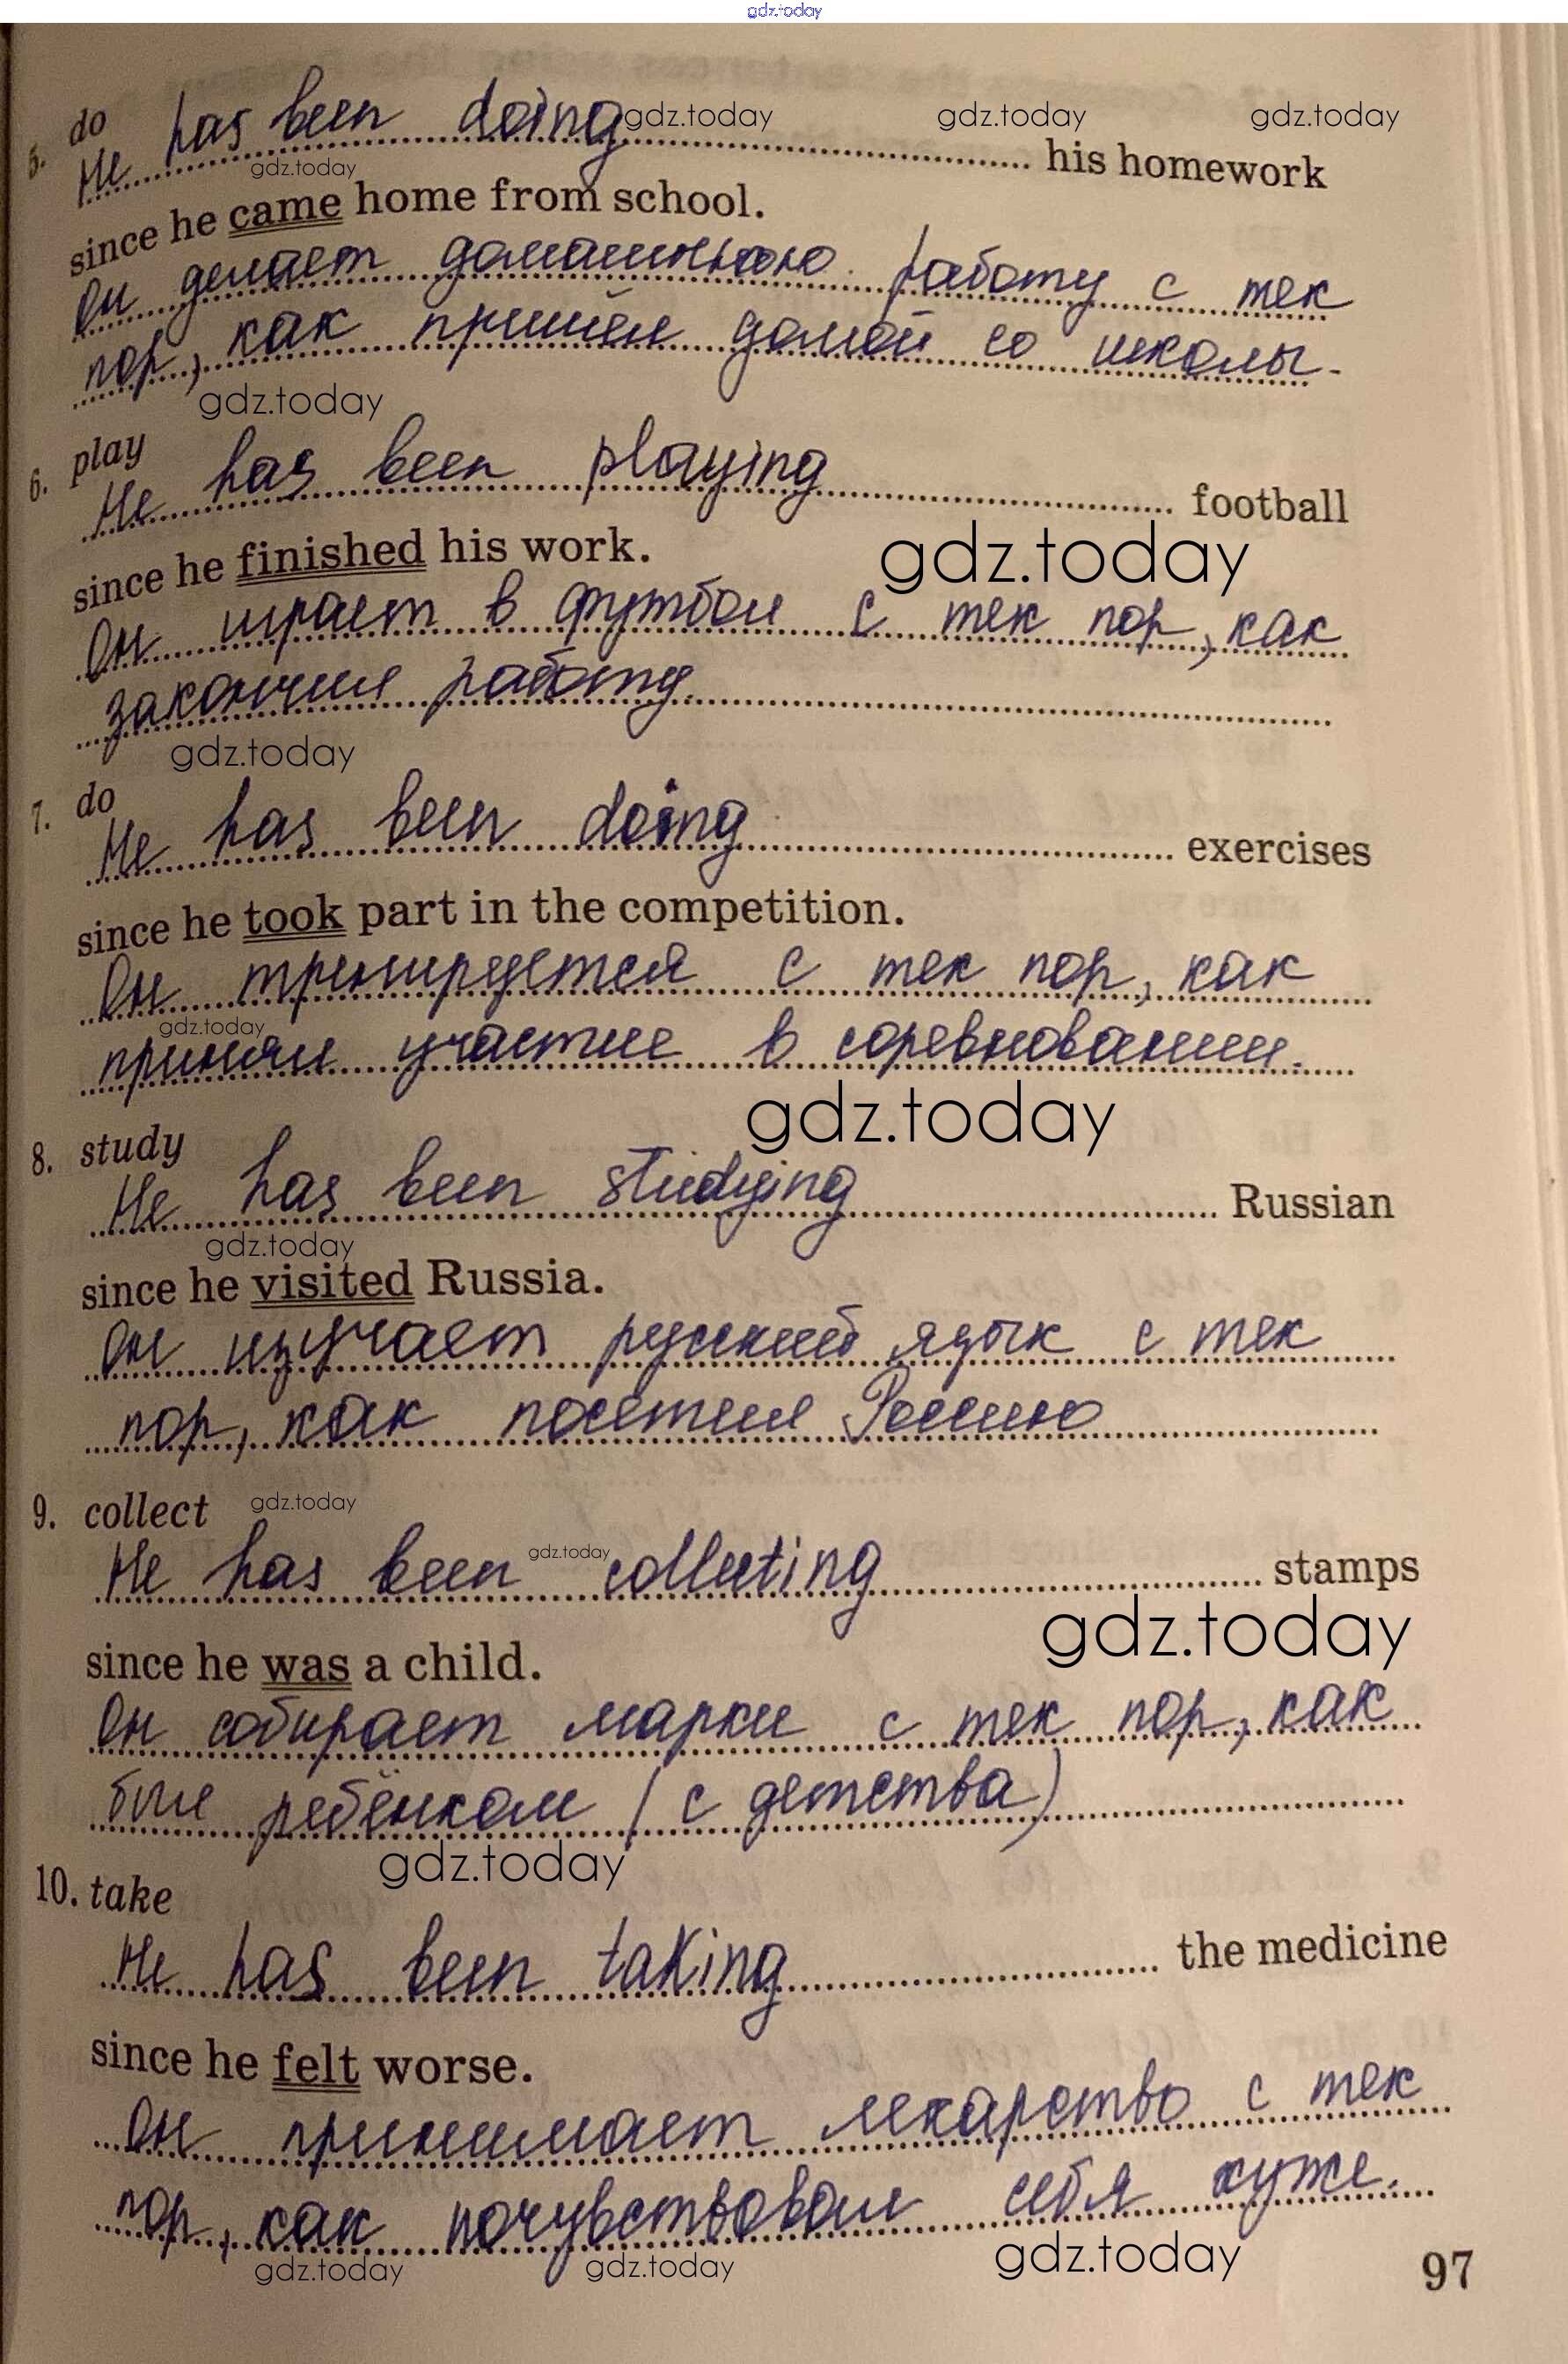 gdz.today
5. do
He has been doing his homework
gdz.today gdz.today gdz.today
gdz.today
since he came home from school.
Он делает домашнюю работу с тех
пор, как пришёл домой со школы.
gdz.today
6. play
He has been playing football
since he finished his work.
gdz.today
Он играет в футбол с тех пор, как
закончил работу.
gdz.today
7. do
He has been doing exercises
since he took part in the competition.
Он тренируется с тех пор, как
gdz.today
принял участие в соревновании.
gdz.today
8. study
He has been studying Russian
gdz.today
since he visited Russia.
Он изучает русский язык с тех
пор, как посетил Россию
9. collect
gdz.today
He has been collecting stamps
gdz.today
gdz.today
since he was a child.
Он собирает марки с тех пор, как
был ребёнком (с детства)
gdz.today
10. take
He has been taking the medicine
since he felt worse.
Он принимает лекарство с тех
пор, как почувствовал себя хуже.
gdz.today gdz.today gdz.today
97